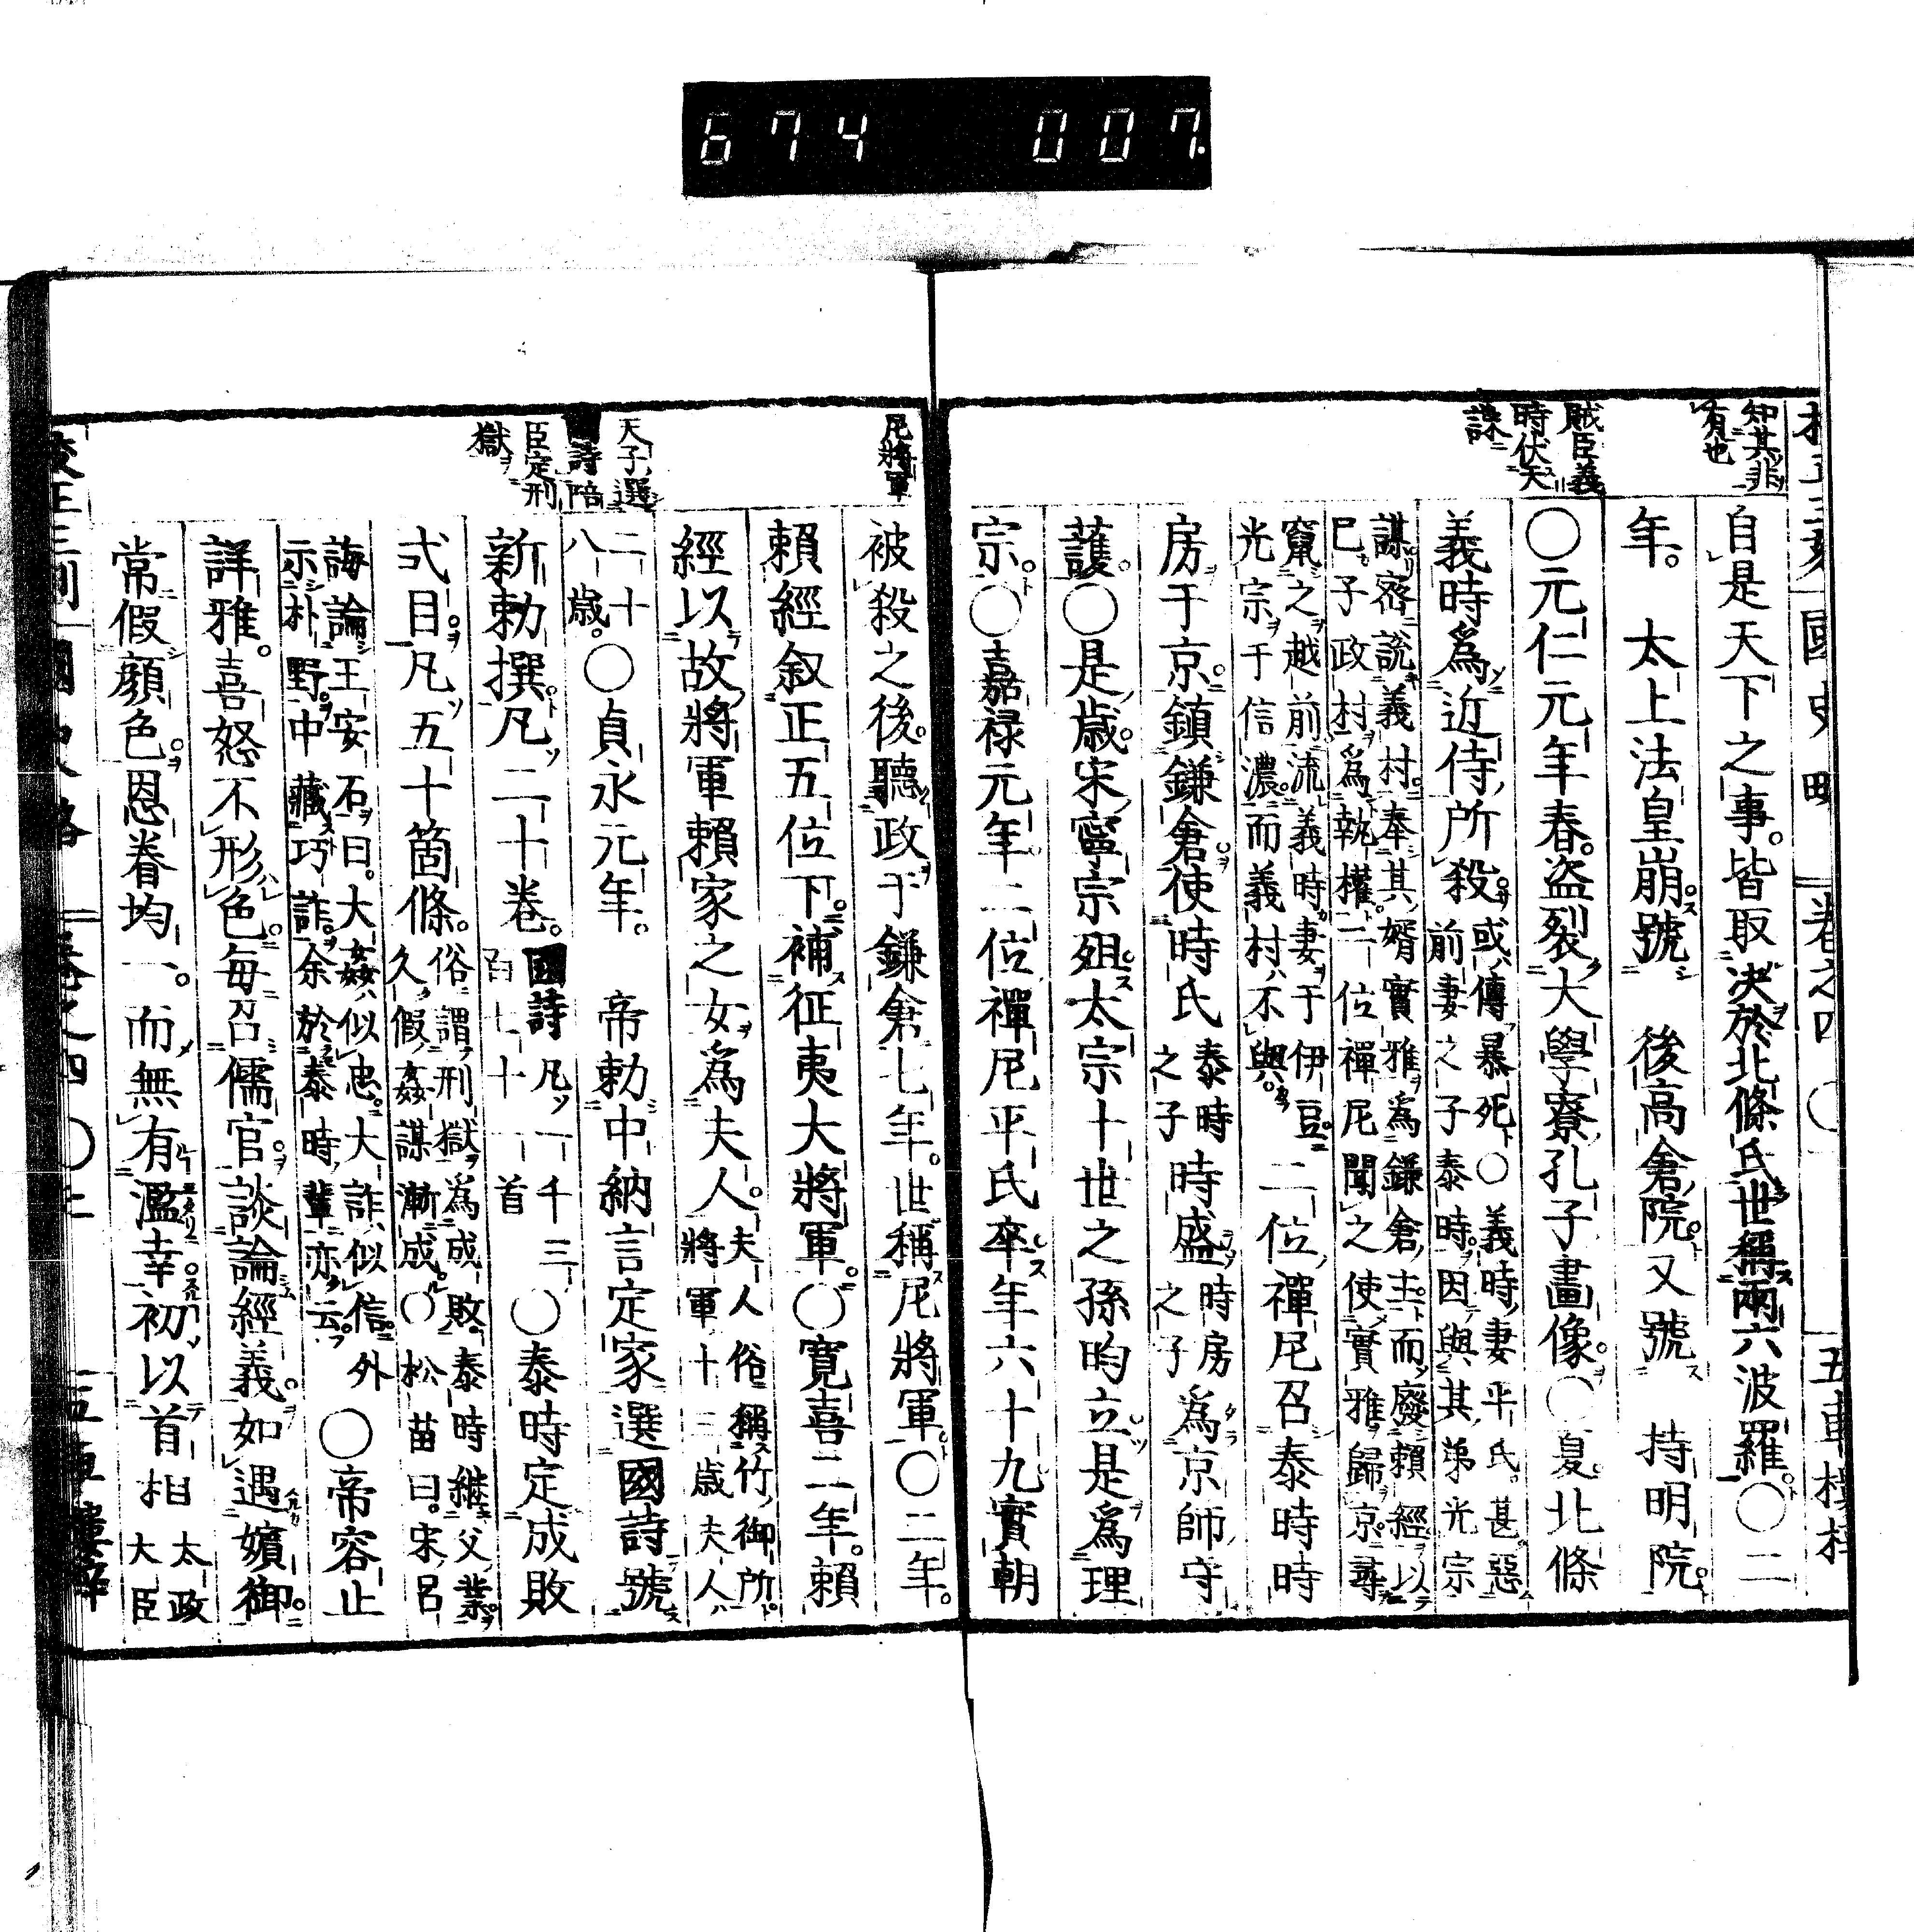 674 007.
知其非
有也
賊臣義
時伏天
誅
國史略 卷之四 〇
自是天下之事。皆取決於北條氏世稱兩六波羅。〇二
年。 太上法皇崩。號 後高倉院。又號 持明院。
〇元仁元年春。盜裂大學寮孔子畫像。〇夏北條
義時爲近侍所殺。
或傳暴死〇義時妻平氏。甚惡
前妻之子泰時。因與其弟光宗
謀。密說義村。奉其婿實雅爲鎌倉主。而廢賴經。以
巳子政村爲執權。二位禪尼聞之使實雅歸京。尋
竄之越前流義時妻于伊豆。
光宗于信濃。而義村不與。
二位禪尼召泰時時
房于京。鎮鎌倉。使時氏
泰時
之子
時盛
時房
之子
爲京師守
護。〇是歲。宋寧宗殂。太宗十世之孫昀立。是爲理
宗。〇嘉祿元年二位禪尼平氏卒年六十九實朝
尼將軍
天子選
詩陪
臣定刑
獄
被殺之後。聽政于鎌倉七年。世稱尼將軍。〇二年。
賴經敘正五位下。補征夷大將軍。〇寬喜二年。賴
經以故將軍賴家之女爲夫人。
夫人俗稱竹御所。
將軍十三歲夫人
二十
八歲。
〇貞永元年。 帝勅中納言定家選國詩號
新勅撰。凡二十卷。
國詩凡一千三
百七十一首
〇泰時定成敗
式目。凡五十箇條。
俗謂刑獄爲成敗。泰時繼父業。
久假姦謀漸成。〇松苗曰。宋呂
誨論王安石曰。大姦似忠。大詐似信。外
示朴野。中藏巧詐。余於泰時輩亦云。
〇帝容止
詳雅。喜怒不形色。每召儒官。談論經義。如遇嬪御。
常假顏色。恩眷均一。而無有濫幸。初以首相
太政
大臣